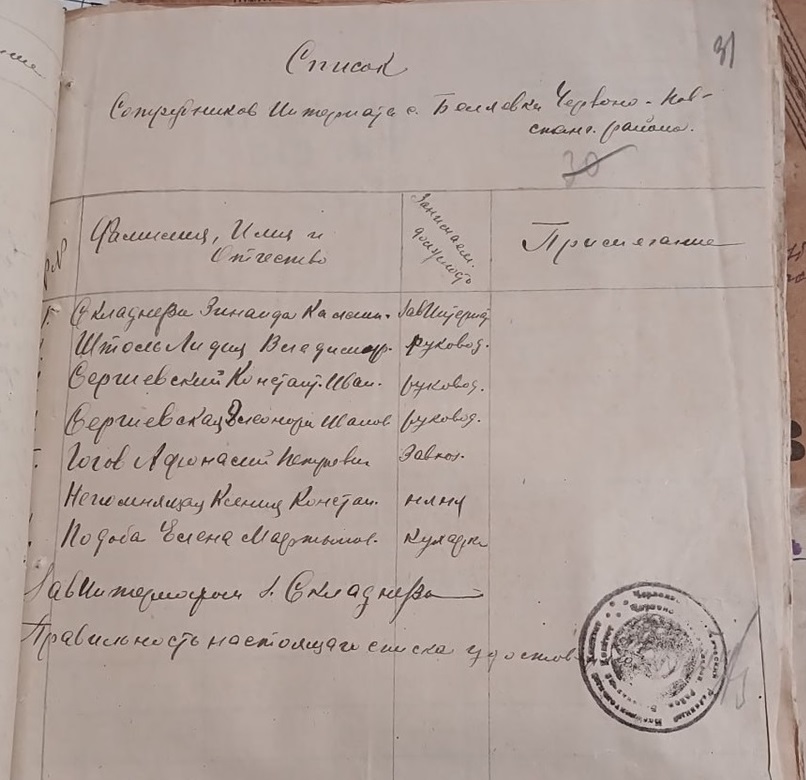 31
Список
Сотрудников Интерната с. Беляевки Червоно-Пов-
станч. района.
30
№№
Фамилия, Имя и
Отчество
Занимаем.
должность
Примечание
Складнева Зинаида Камен. Зав Интернат
Штоль Лидия Владимир. руковод.
Сергиевский Констант. Иван. руковод.
Сергиевская Элеонора Иванов руковод.
Гогов Афонасий Петрович Завхоз.
Непомнящая Ксения Констан. няня
Подоба Елена Мартынов. Кухарка
Зав Интернатом Складнева
Правильность настоящаго списка удостов